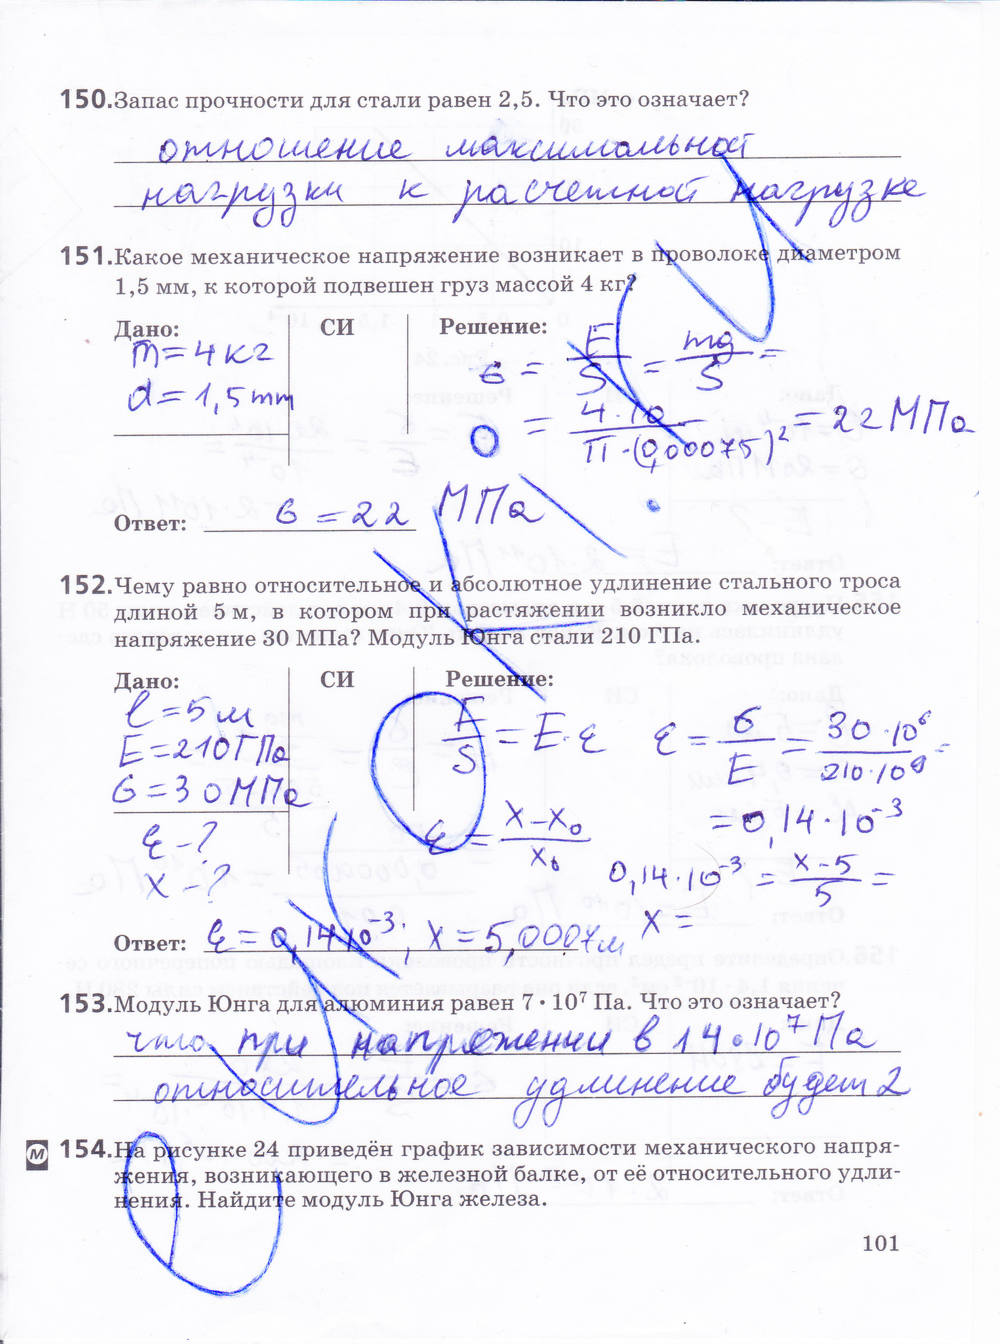 150. Запас прочности для стали равен 2,5. Что это означает?
отношение максимальной
нагрузки к расчетной нагрузке
151. Какое механическое напряжение возникает в проволоке диаметром
1,5 мм, к которой подвешен груз массой 4 кг?
Дано: СИ Решение:
m = 4 кг
d = 1,5 mm
σ = F/S = mg/S =
= 4·10/П·(0,00075)² = 22 МПа
Ответ: σ = 22 МПа
152. Чему равно относительное и абсолютное удлинение стального троса
длиной 5 м, в котором при растяжении возникло механическое
напряжение 30 МПа? Модуль Юнга стали 210 ГПа.
Дано: СИ Решение:
l = 5 м
E = 210 ГПа
σ = 30 МПа
ε - ?
x - ?
F/S = E·ε ε = σ/E = 30·10⁶/210·10⁹ =
= 0,14·10⁻³
ε = x-x₀/x₀
0,14·10⁻³ = x-5/5 =
x =
Ответ: ε = 0,14·10⁻³; x = 5,0007 м
153. Модуль Юнга для алюминия равен 7 · 10⁷ Па. Что это означает?
что при напряжении в 14·10⁷ Па
относительное удлинение будет 2
М
154. На рисунке 24 приведён график зависимости механического напря-
жения, возникающего в железной балке, от её относительного удли-
нения. Найдите модуль Юнга железа.
101